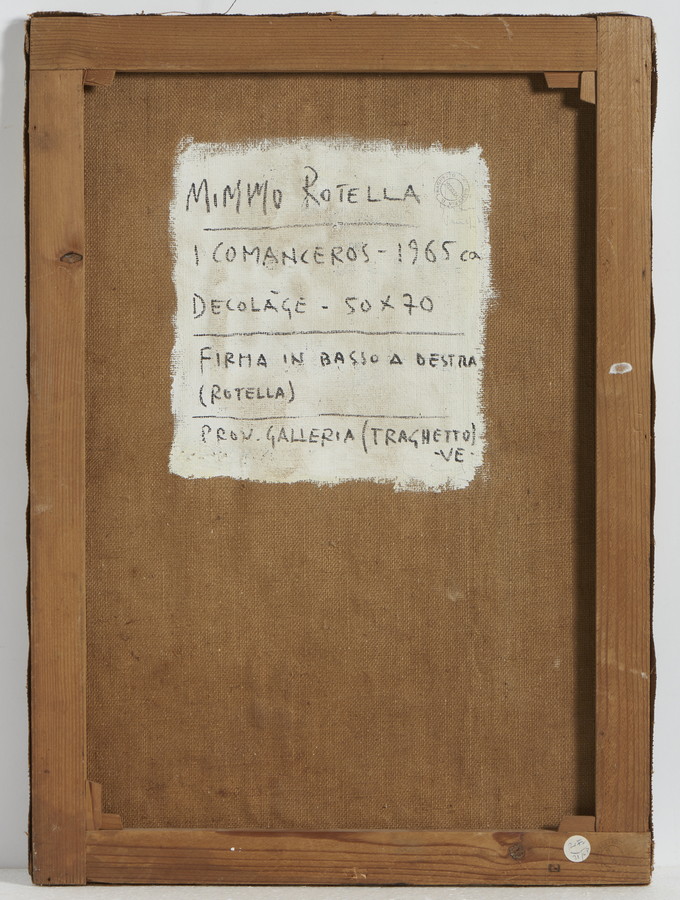 MIMMO ROTELLA
I COMANCEROS - 1965 ca
DECOLÂGE - 50 X 70
FIRMA IN BASSO A DESTRA
(ROTELLA)
PROV. GALLERIA (TRAGHETTO)
-VE-